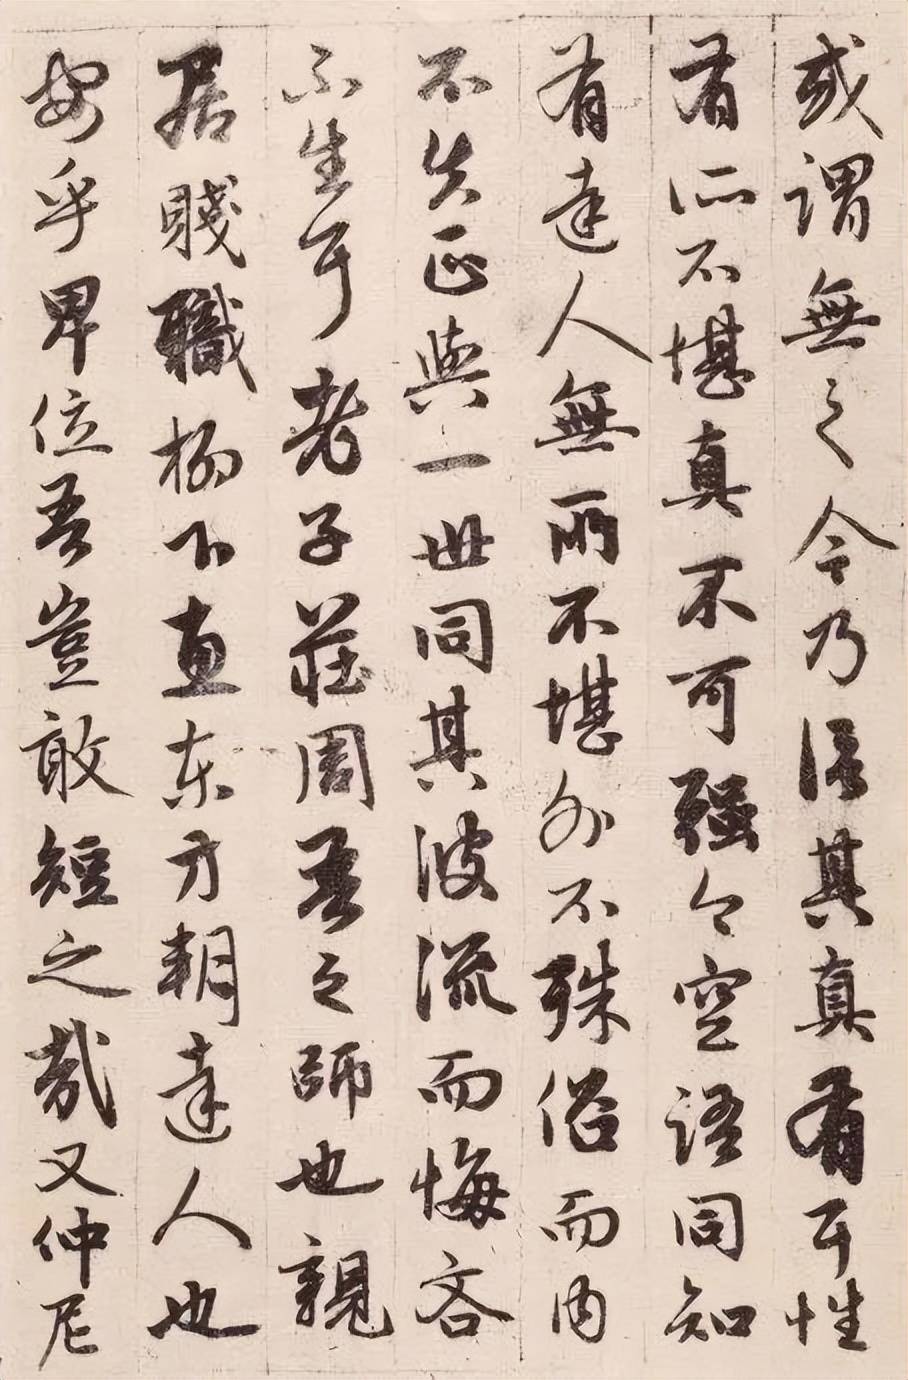 或謂無之今乃信其真有耳性
有所不堪真不可强今空語同知
有達人無所不堪外不殊俗而内
不失正與一世同其波流而悔吝
不生耳老子莊周吾之師也親
居賤職柳下惠東方朔達人也
安乎卑位吾豈敢短之哉又仲尼